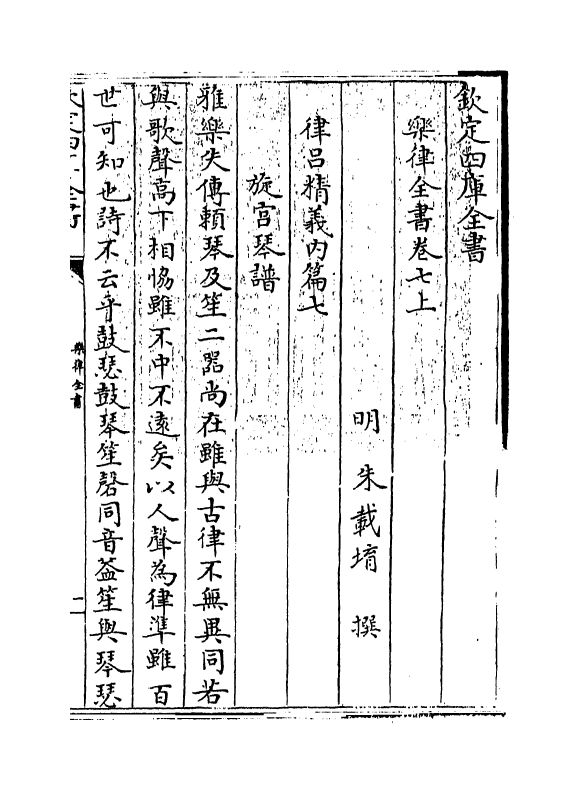 欽定四庫全書
樂律全書卷七上
明 朱載堉 撰
律呂精義內篇七
旋宫琴譜
雅樂失傳頼琴及笙二器尚在雖與古律不無異同若
與歌聲高下相恊雖不中不逺矣以人聲為律準雖百
世可知也詩不云乎鼓瑟鼓琴笙磬同音葢笙與琴瑟
樂律全書